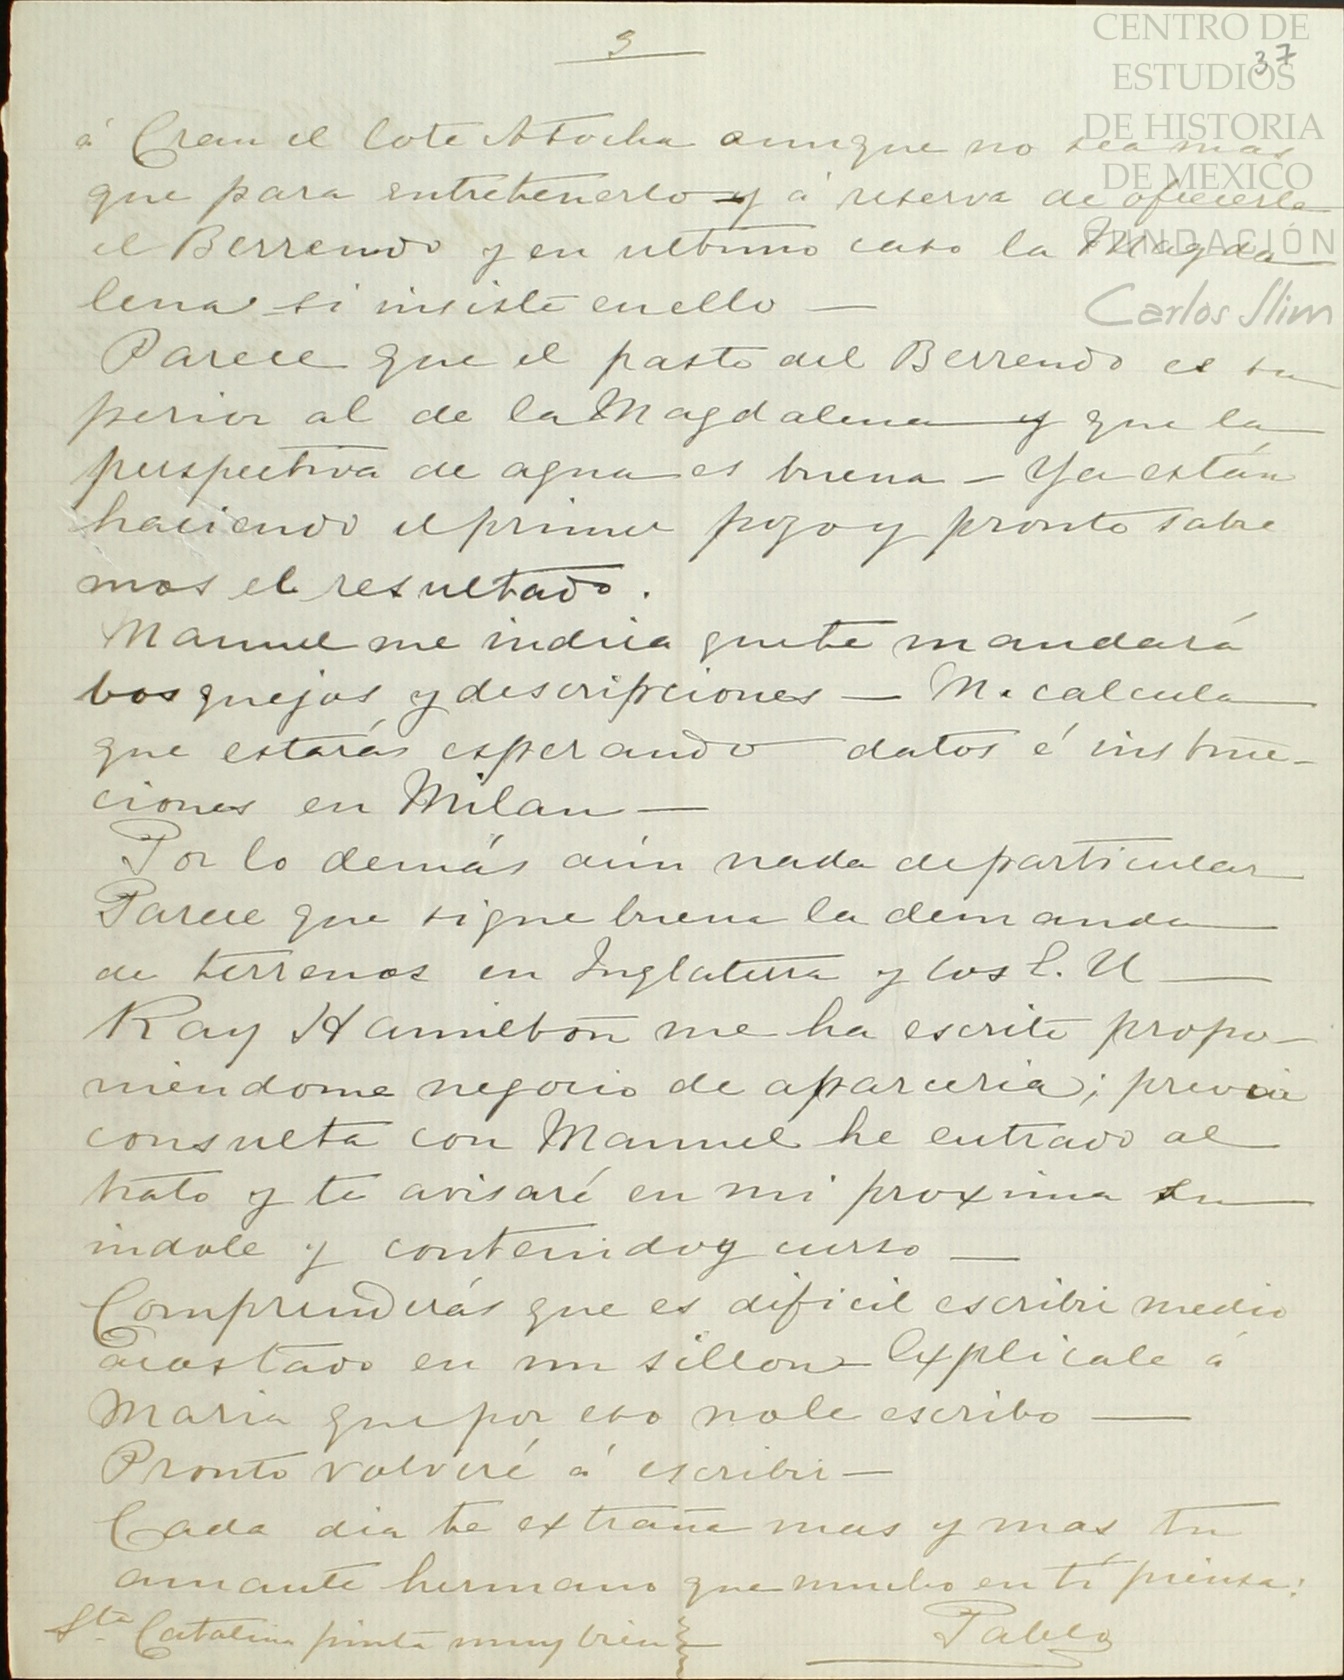 3
37
CENTRO DE
ESTUDIOS
DE HISTORIA
DE MEXICO
FUNDACIÓN
Carlos Slim
á Crean el lote Atocha aunque no sea mas
que para entretenerlo y á reserva de ofrecerle
el Berrendo y en ultimo caso la Magda
lena si insiste en ello —
Parece que el pasto del Berrendo es su
perior al de la Magdalena y que la
perspectiva de agua es buena — Ya están
haciendo el primer pozo y pronto sabre
mos el resultado.
Manuel me indica que te mandará
bosquejos y descripciones — M. calcula
que estarás esperando datos é instruc-
ciones en Milan —
Por lo demás aún nada de particular
Parece que sigue buena la demanda
de terrenos en Inglaterra y los E. U —
Ray Hamilton me ha escrito propo-
niendome negocio de aparceria; previa
consulta con Manuel he entrado al
trato y te avisaré en mi proxima su
indole y contenido y curso —
Comprenderás que es dificil escribir medio
acostado en un sillon — Explicale á
Maria que por eso no le escribo —
Pronto volveré á escribir —
Cada dia te extraña mas y mas tu
amante hermano que mucho en tí piensa:
Pablo
Sta. Catalina pinta muy bien —